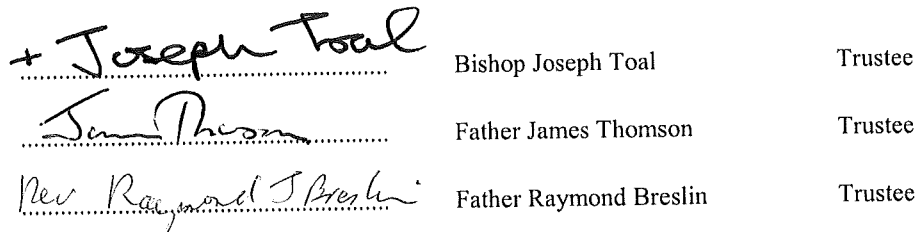 + Joseph Toal Bishop Joseph Toal Trustee
James Thomson Father James Thomson Trustee
Rev Raymond J Breslin Father Raymond Breslin Trustee